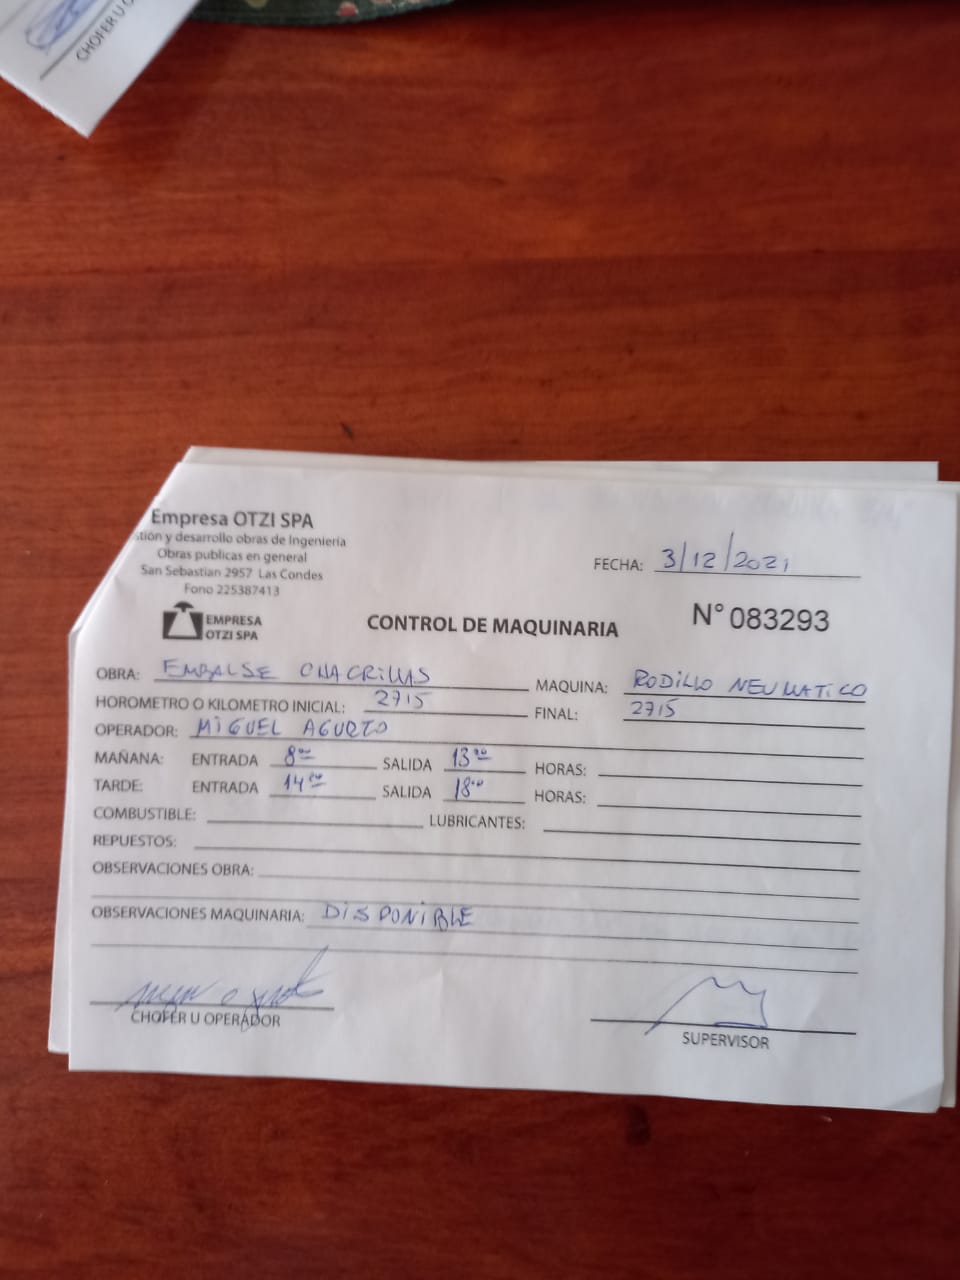 CHOFER U O
Empresa OTZI SPA
stión y desarrollo obras de Ingeniería
Obras publicas en general
San Sebastian 2957 Las Condes
Fono 225387413
EMPRESA
OTZI SPA
FECHA: 3/12/2021
CONTROL DE MAQUINARIA
N° 083293
OBRA: EMBALSE CHACRILLAS MAQUINA: RODILLO NEUMATICO
HOROMETRO O KILOMETRO INICIAL: 2715 FINAL: 2715
OPERADOR: MIGUEL AGURTO
MAÑANA: ENTRADA 8:00 SALIDA 13:00 HORAS:
TARDE: ENTRADA 14:00 SALIDA 18:00 HORAS:
COMBUSTIBLE: LUBRICANTES:
REPUESTOS:
OBSERVACIONES OBRA:
OBSERVACIONES MAQUINARIA: DISPONIBLE
CHOFER U OPERADOR
SUPERVISOR